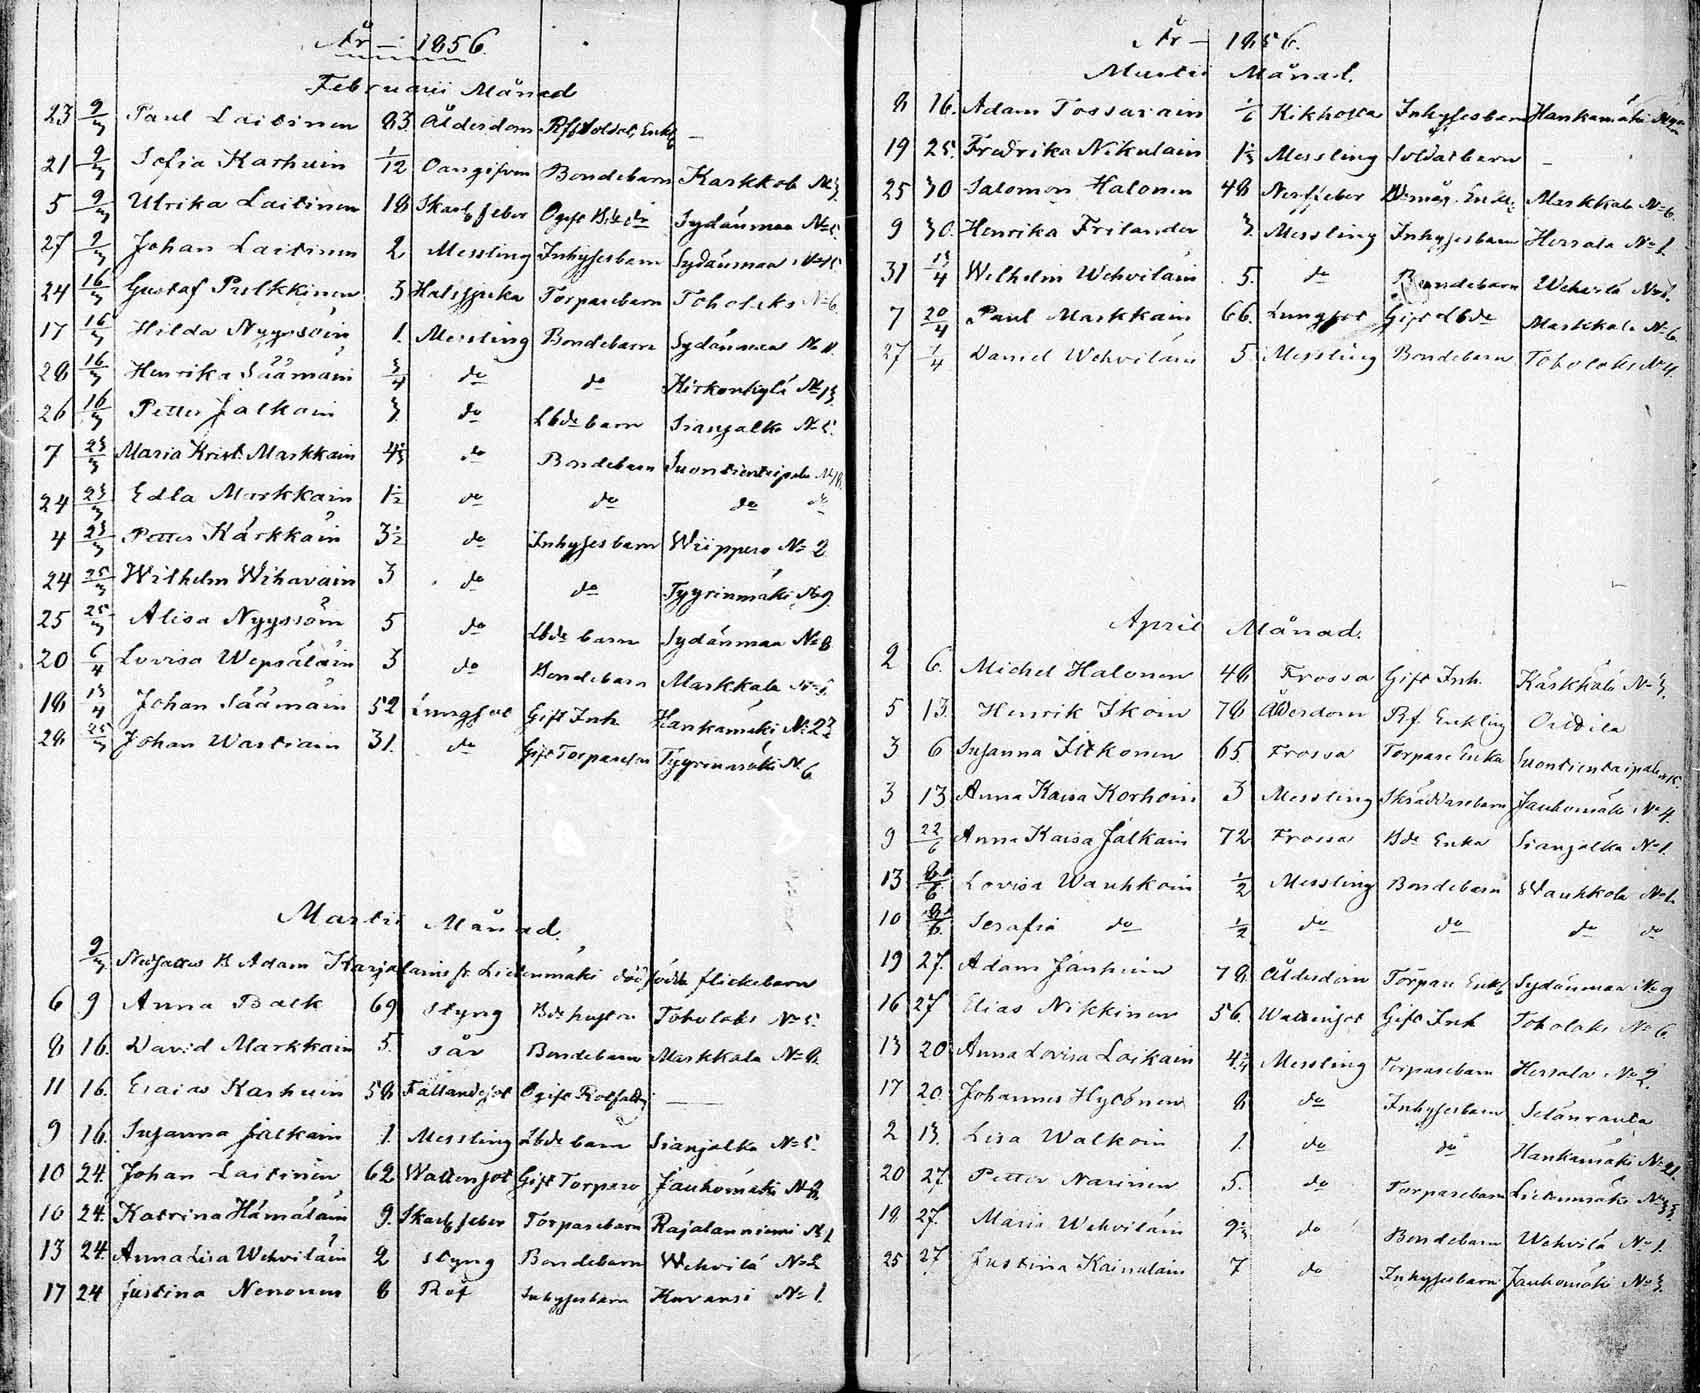 År – 1856.
Februarii Månad
23 9/3 Paul Laitinen 83. Ålderdom Rfst soldat, Enkl —
21 9/3 Sofia Karhuin 1/12 Oangifven Bondebarn Karkkola No 3
5 9/3 Ulrika Laitinen 18 Skarl. feber Ogift Sydänmaa No 5.
27 9/3 Johan Laitinen 2 Messling Inhysesbarn Sydänmaa No 15
24 16/3 Gustaf Pulkkinen 3 Halssjuka Torparebarn Toholaks No 6.
17 16/3 Hilda Nyyssöin 1. Messling Bondebarn Sydänmaa No 11.
28 16/3 Henrika Säämäin 3/4 do do Kirkonkylä No 13
26 16/3 Petter Jalkain 3. do Lbde barn Sianjalka No 5.
7 23/3 Maria Krist. Markkain do Bondebarn Suontientaipale No 18.
24 23/3 Edla Markkain 1 1/2 do do do do
4 23/3 Petter Kärkkäin 3 1/2 do Inhysesbarn Wiippero No 2
24 25/3 Wilhelm Wihavain 3 do do Tyyrinmäki No 9.
25 25/3 Alisa Nyyssöin 5 do Lbde barn Sydänmaa No 8
20 6/4 Lovisa Wepsäläin 3 do Bondebarn Markkala No 5.
18 13/4 Johan Säämäin 52 Lungsot Gift Inh Hankamäki No 22
28 25/3 Johan Wartiain 31. do Gift Torpare Tyyrinmäki No 6
Martii Månad.
9/3 B Adam Karjalains fr. Lietenmäki dödfödda flickebarn
6 9 Anna Back 69 styng Bde hustru Toholaks No 5.
8 16. David Markkain 5. sår Bondebarn Markkala No 8.
11 16. Esaias Karhuin 58 Fallandesot Ogift Rotfattig —
9 16. Susanna Jalkain 1. Messling Lbde barn Sianjalka No 5.
10 24. Johan Laitinen 62 Wattensot Gift Torpare Jauhomäki No 8.
10 24. Katrina Hämäläin 9. Skarl. feber Torparebarn Rajalanniemi No 1
13 24. Anna Lisa Wehviläin 2 styng Bondebarn Wehvilä No 2
17 24 Justina Nenonen 8 Röt Inhysesbarn Kuvansi No 1.
År – 1856.
Martii Månad.
8 16. Adam Tossavain 1/6 Kikhosta Inhysesbarn Hankamäki
19 25. Fredrika Nikulain Messling Soldatbarn –
25 30 Salomon Halonen 48 Nerffeber Markkala No 6.
9 30. Henrika Frilander 3. Messling Inhysesbarn Herrala No 1.
31 13/4 Wilhelm Wehviläin 5. do Bondebarn Wehvilä No 2.
7 20/4 Paul Markkain 66. Lungsot Gift Lbde Markkala No 6.
27 7/4 Daniel Wehviläin 5 Messling Bondebarn Toholaks No 4.
April Månad.
2 6. Michel Halonen 48 Frossa Gift Inh. Karkkala No 3.
5 13. Henrik Ikoin 78 Ålderdom Rf. Enkling
3 6 Susanna Itkonen 65 Frossa Torpare Enka Suontientaipale No 15.
3 13 Anna Kaisa Korhoin 3 Messling Skräddarebarn Jauhomäki No 4.
9 22/6 Anna Kaisa Jalkain 72 Frossa Bde Enka Sianjalka No 1.
13 Lovisa Wauhkoin 1/2 Messling Bondebarn Wauhkola No 1.
10 Serafia do 1/2 do do do do
19 27. Adam Jänhuin 78 Ålderdom Torpare Enkl Sydänmaa No 9
16 27 Elias Nikkinen 56. Wattensot Gift Inh Toholaks No 6.
13 20 Anna Lovisa Laikain Messling Torparebarn Herrala No 2.
17 20. Johannes Hytönen 8 do Inhysesbarn Selänranta
2 13. Lisa Walkoin 1. do do Hankamäki No 21.
20 27. Petter Narinen 5. do Torparebarn Lietenmäki No 35.
18 27. Maria Wehviläin do Bondebarn Wehvilä No 1.
25 27 Justina Kainulain 7 do Inhysesbarn Jauhomäki No 3.